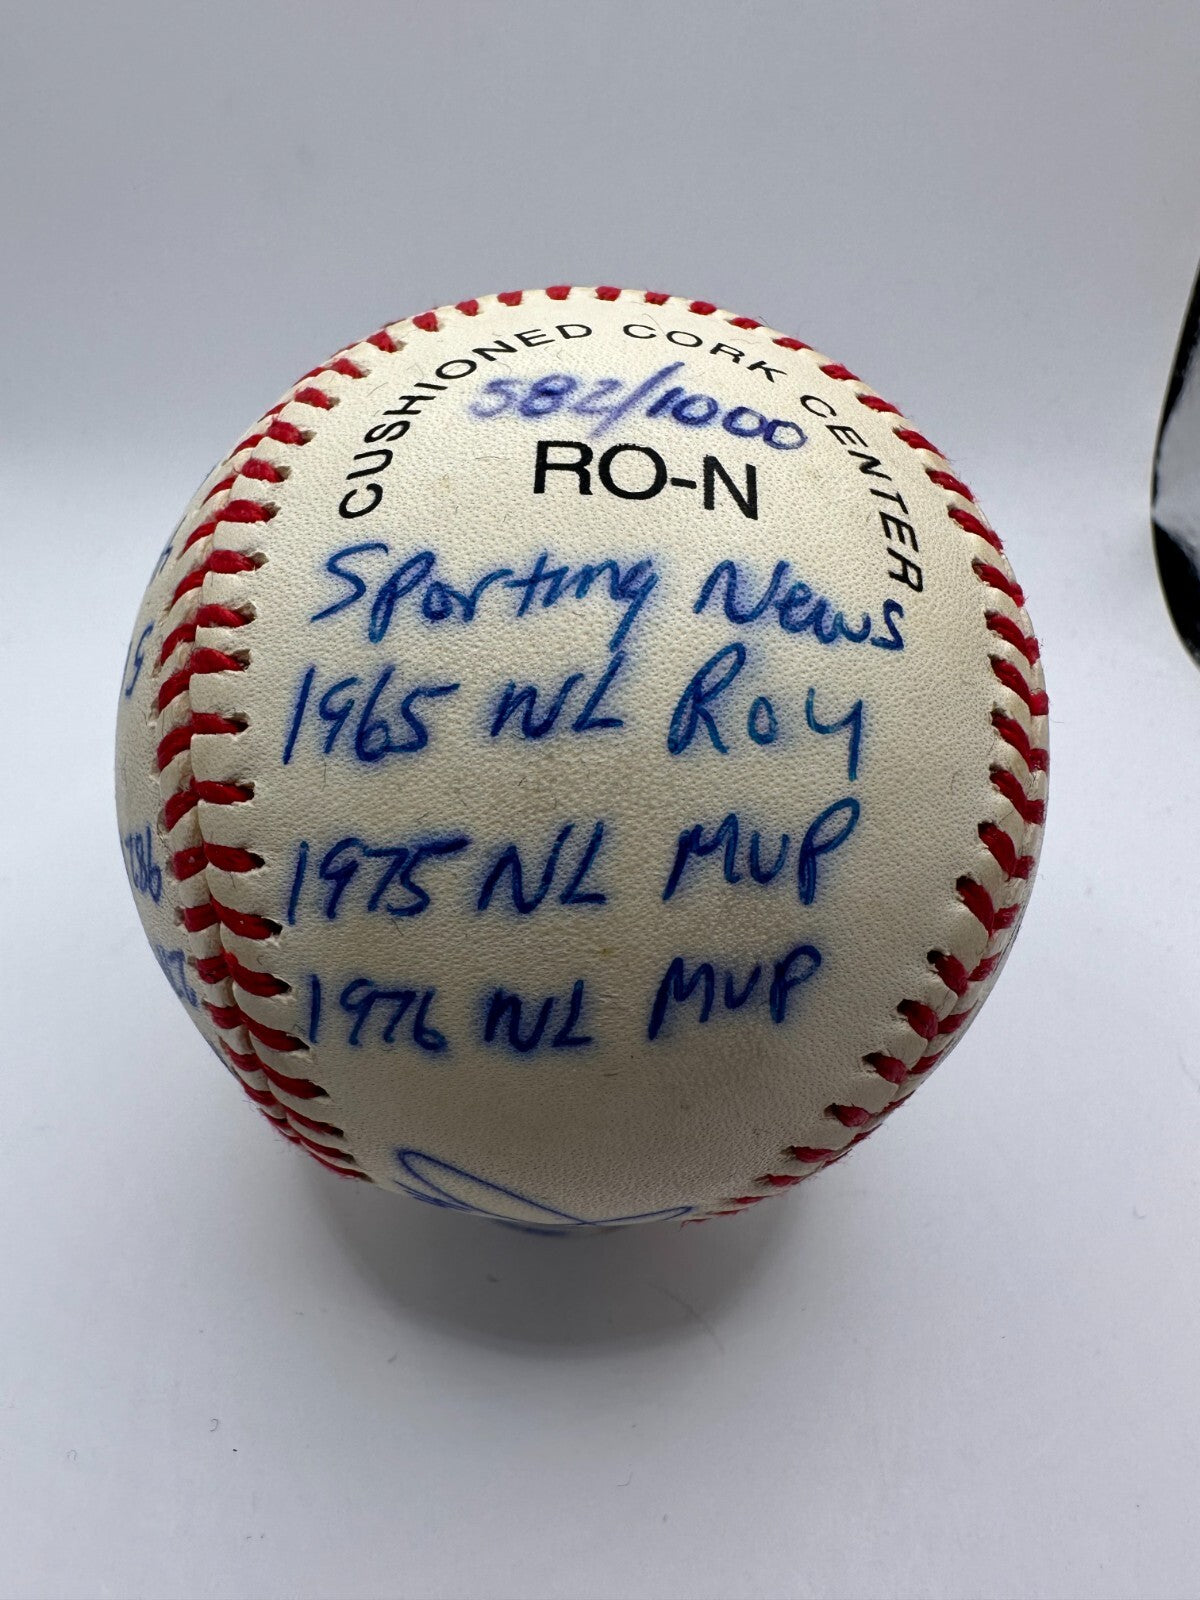 CUSHIONED CORK CENTER
582/1000
RO-N
Sporting News
1965 NL Roy
1975 NL MVP
1976 NL MVP